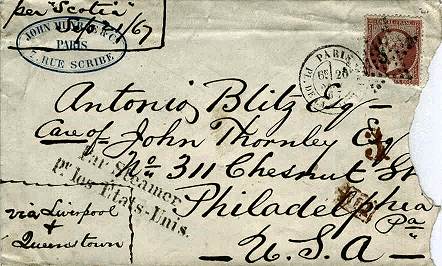 per "Scotia"
21/67
JOHN MUNROE & Co
PARIS
7. RUE SCRIBE
PARIS
Antonio Blitz Esq
Care of John Thornley Esq
No 311 Chesnut St
Par Steamer
pr les Etats-Unis.
Philadelphia
Pa
via Liverpool
&
Queenstown
U. S. A
3